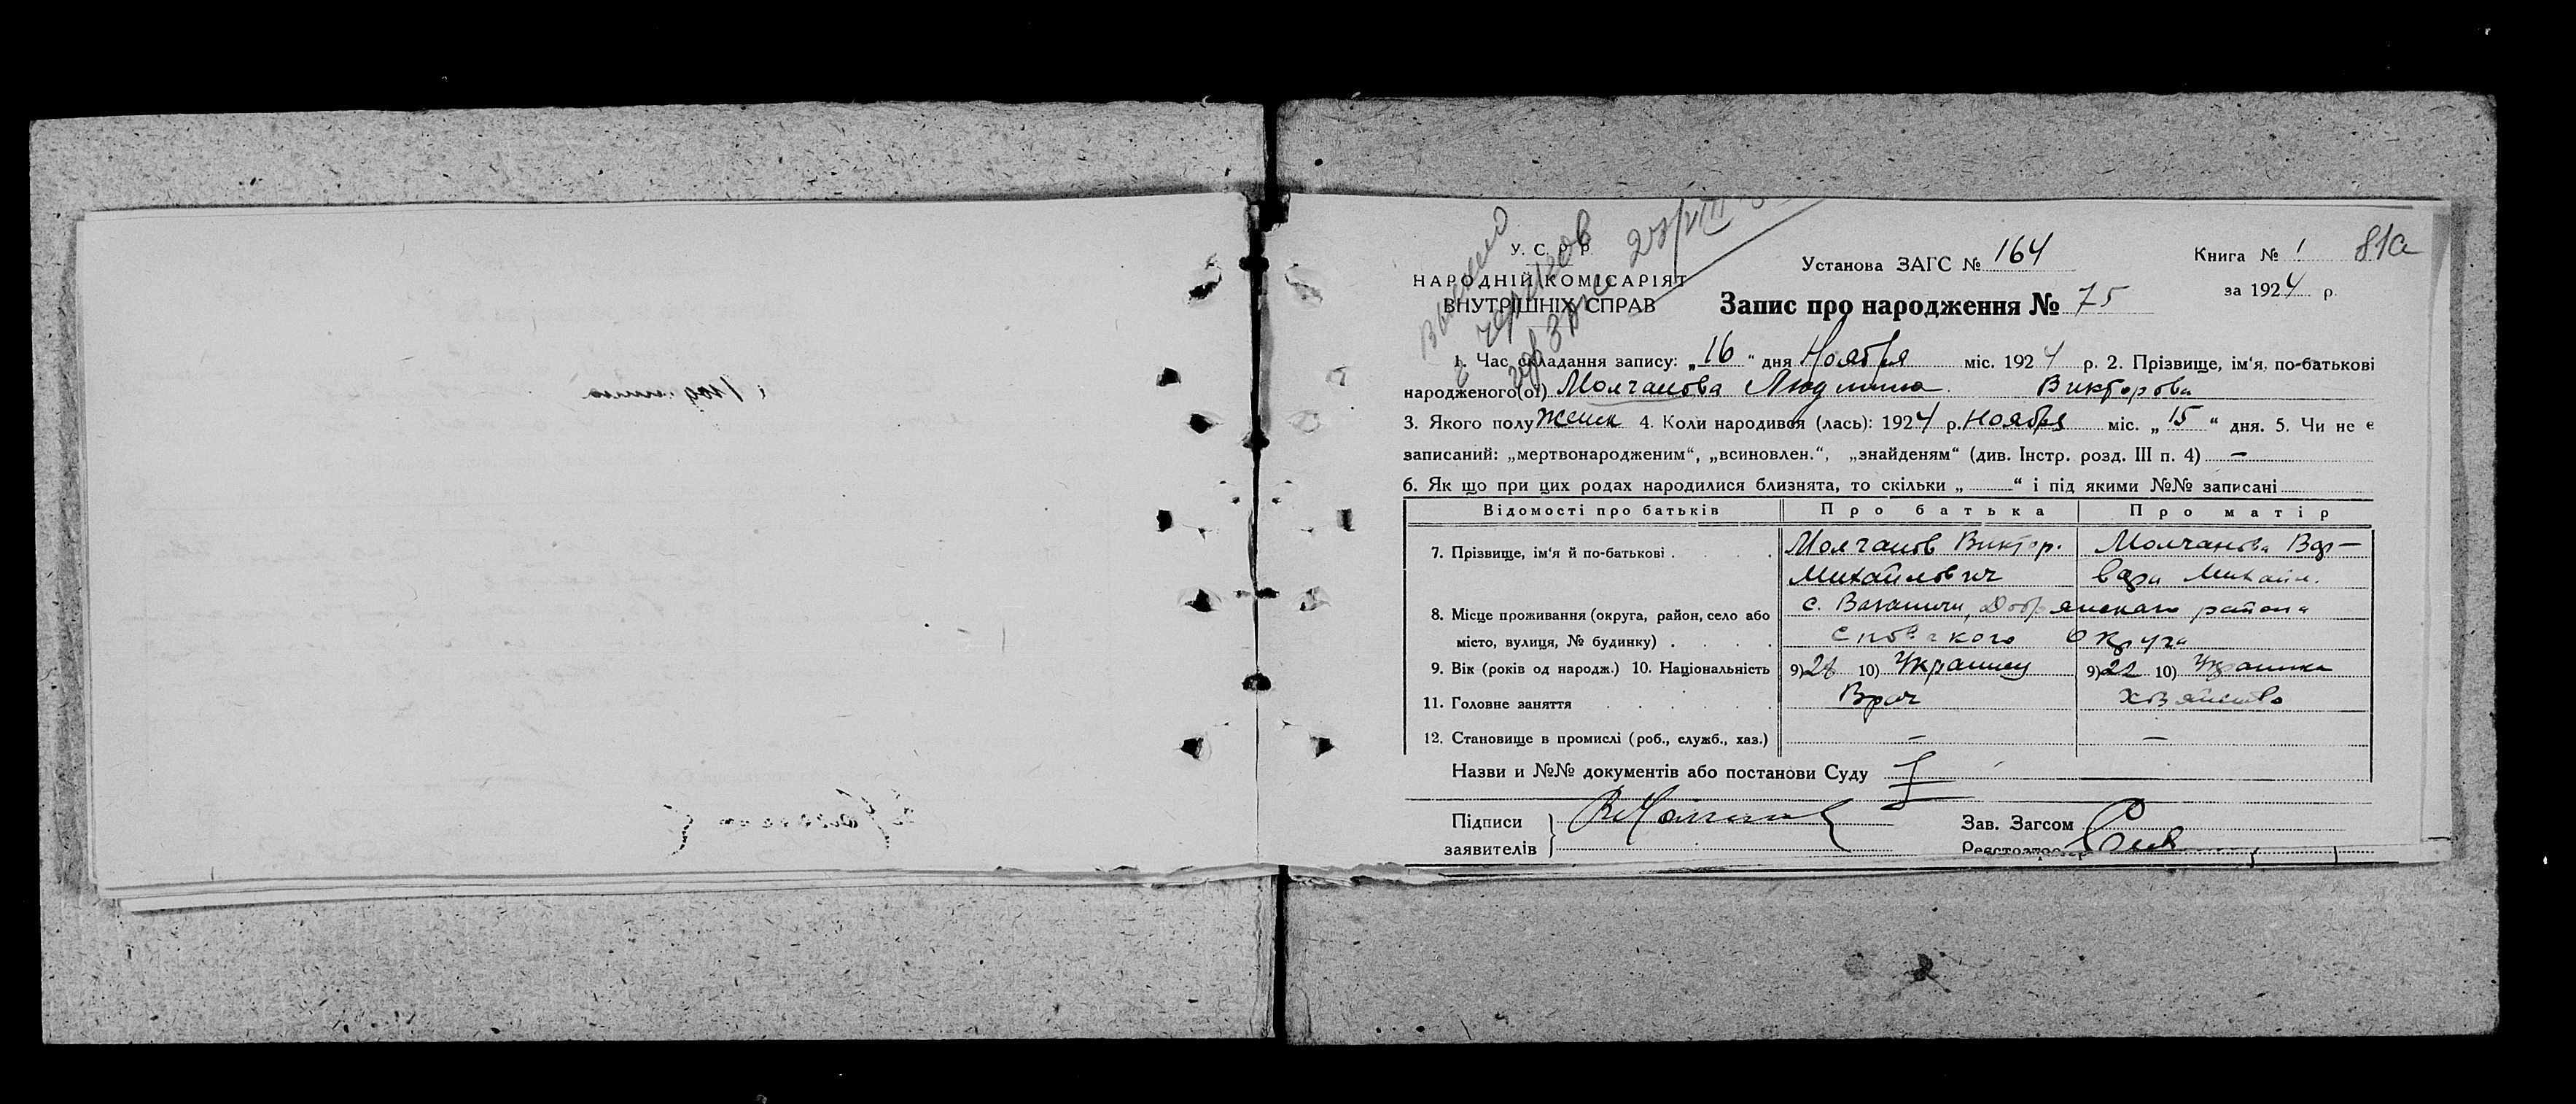 У. С. Р. Р.
НАРОДНІЙ КОМІСАРІЯТ
ВНУТРІШНІХ СПРАВ
Установа ЗАГС № 164
Книга № 1
81а
за 1924 р.
Запис про народження № 75
1. Час складання запису: „16“ дня Ноября міс. 1924 р. 2. Прізвище, ім'я, по-батькові
народженого(ої) Молчанова Людмила Викторова
3. Якого полу Женск 4. Коли народився (лась): 1924 р. Ноября міс. „15“ дня. 5. Чи не є
записаний: „мертвонародженим“, „всиновлен.“, „знайденям“ (див. Інстр. розд. III п. 4) —
6. Як що при цих родах народилися близнята, то скільки „ “ і під якими №№ записані
Відомості про батьків Про батька Про матір
7. Прізвище, ім'я й по-батькові . Молчанов Виктор. Молчанова Вар-
Михайлович вара Михайл.
8. Місце проживання (округа, район, село або с. Добрянскаго района
місто, вулиця, № будинку) . Округа
9. Вік (років од народж.) 10. Національність 9) 28 10) Украинец 9) 22 10) Украинка
11. Головне заняття Врач хозяйство
12. Становище в промислі (роб., служб., хаз.) — —
Назви и №№ документів або постанови Суду
Підписи
заявителів
Зав. Загсом
Реєстратор